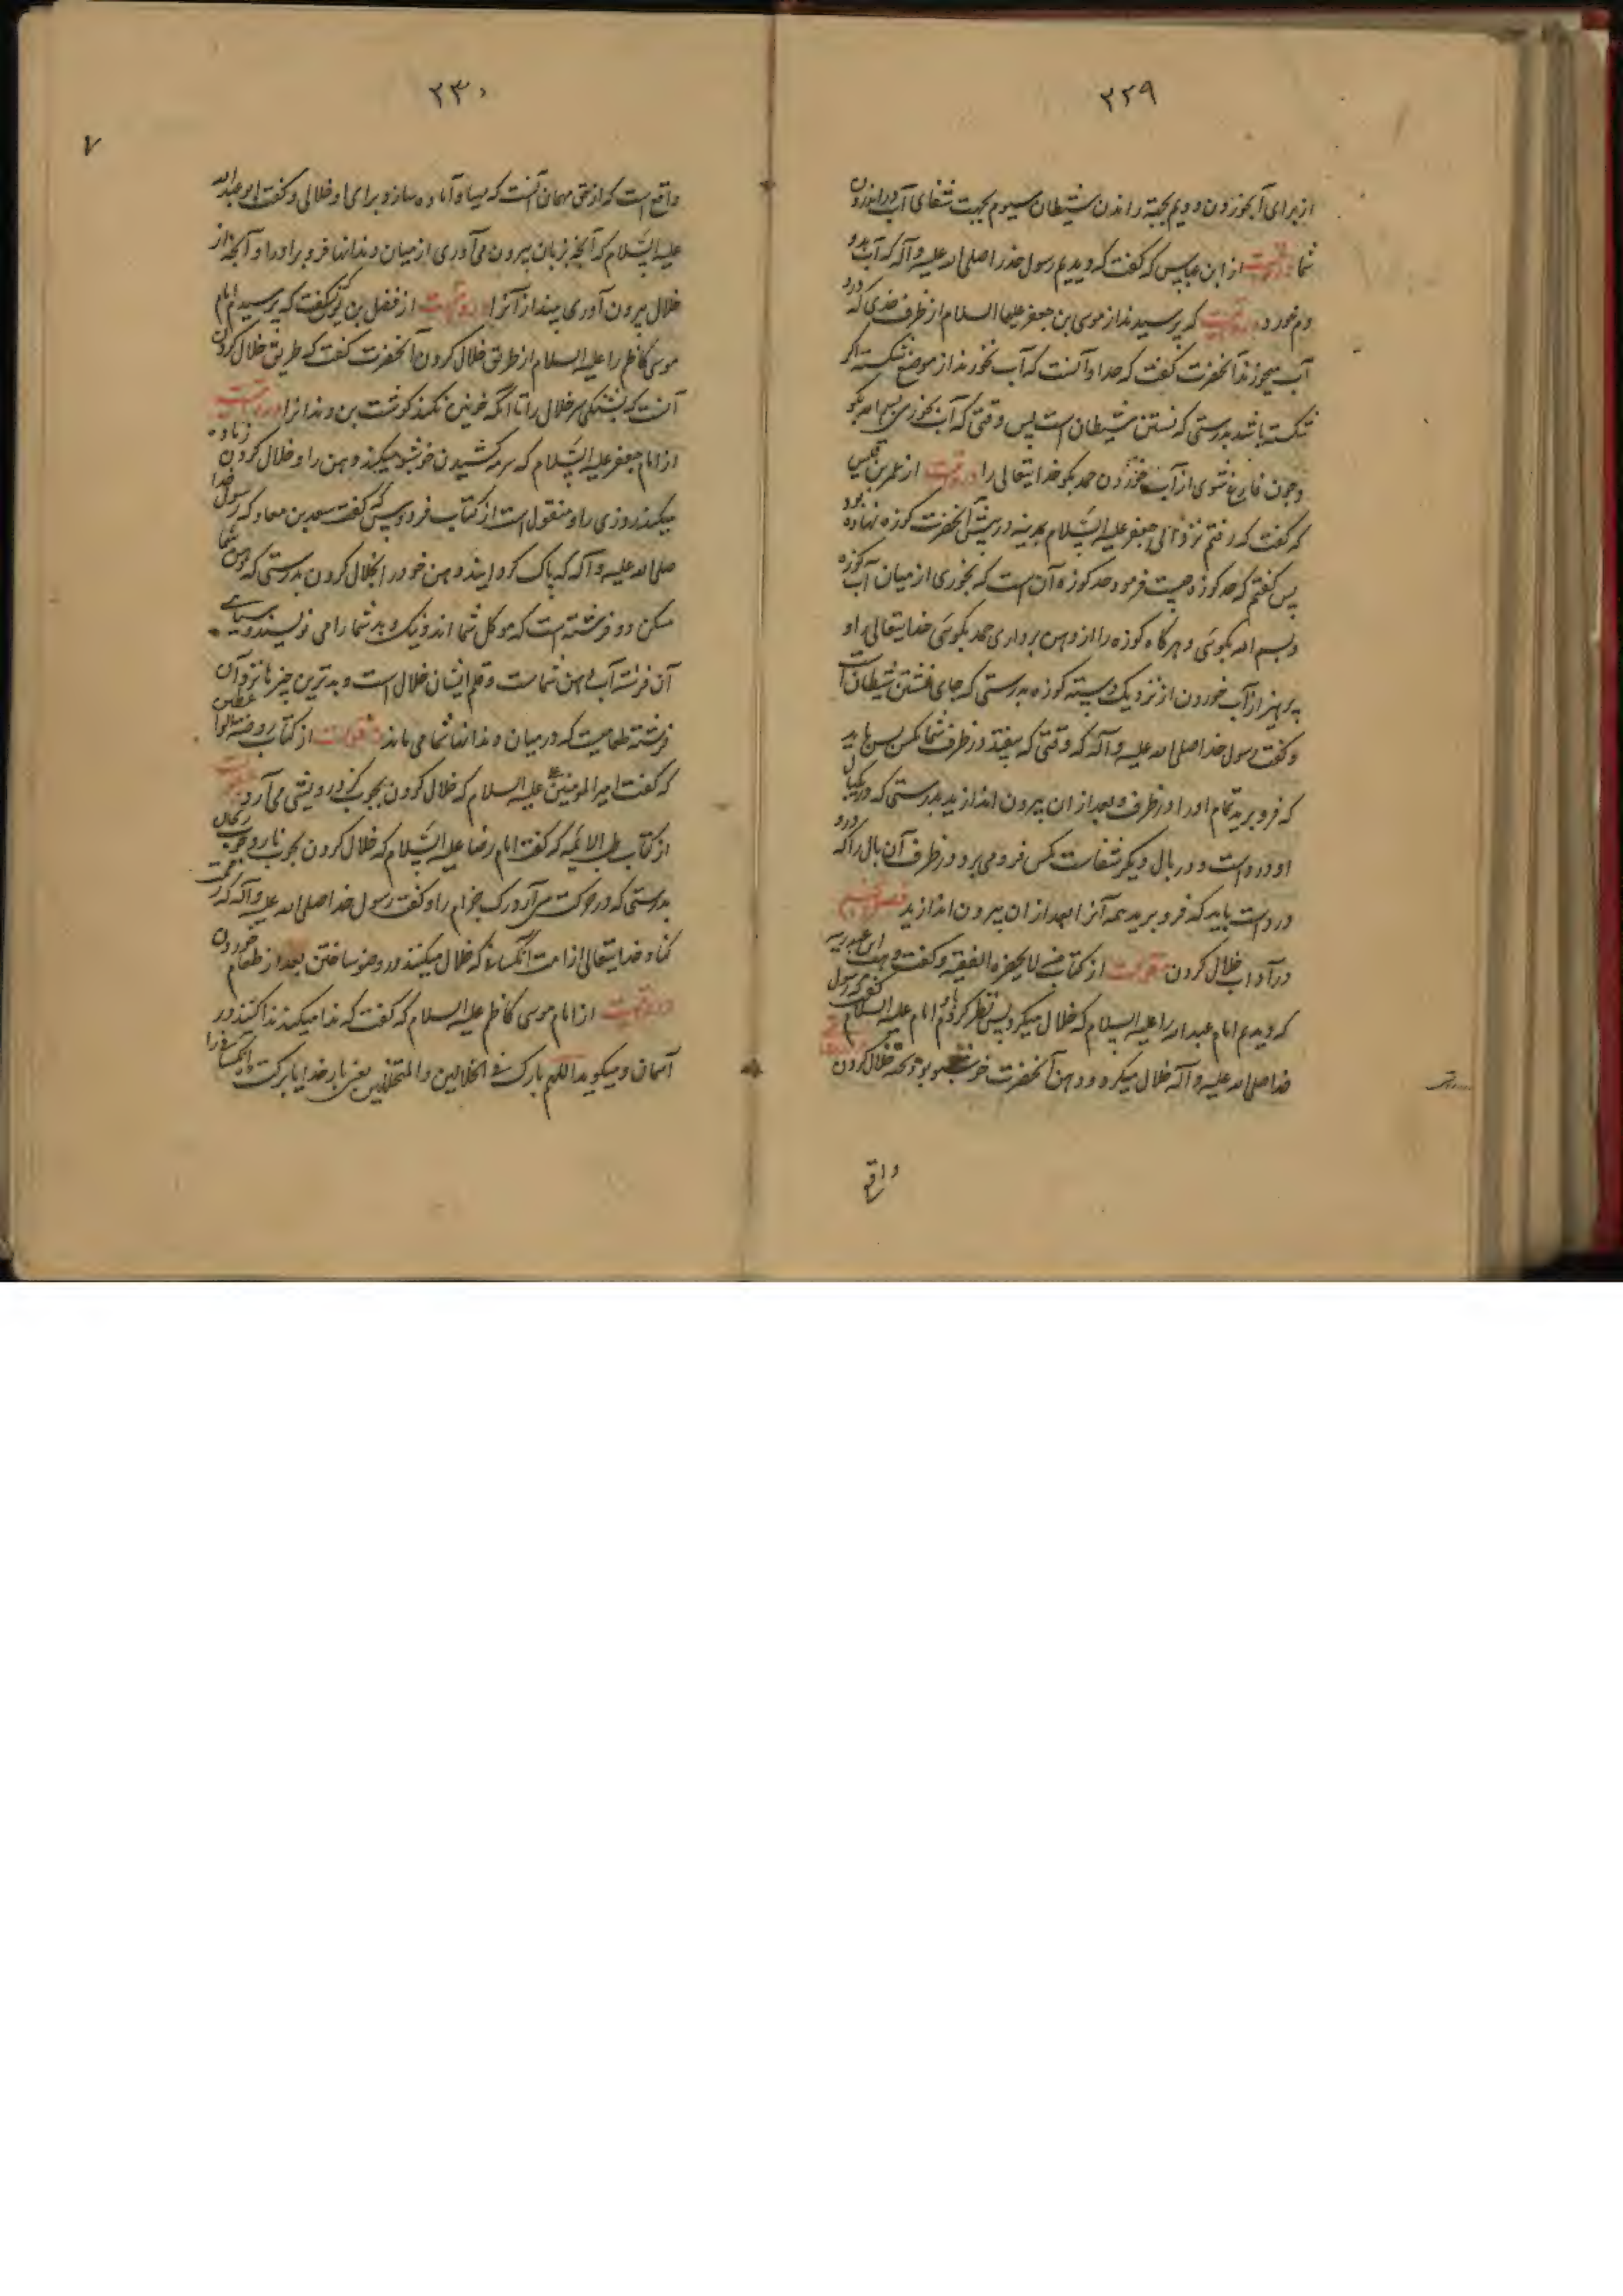 ۲۲۹
از برای آبخوردن دویم بجهة راندن شیطان سیوم بجهت شفای آب در اندرون
شما در روایتست از ابن عباس که گفت که دیدیم رسول خدرا صلی الله علیه و آله که آب بدو
دم خورد در روایتست که پرسیدند از موسی بن جعفر علیهما السلام از ظرف حدی که درو
آب میخورند آنحضرت گفت که حد او آنست که آب نخورند از موضع شکسته اگر
شکسته باشد بدرستی که نشستن شیطان است پس وقتی که آب بخوری بسم الله بگو
و چون فارغ شوی از آب خوردن حمد بگو خدایتعالی را در روایتست از عمر بن قیس
که گفت که رفتم نزد ابی جعفر علیه السلام بمدینه در پیش آنحضرت کوزه نهاده بود
پس گفتم که حد کوزه چیست فرمود حد کوزه آن است که بخوری از میان آب کوزه
و بسم الله بگوئی و هرگاه کوزه را از دهن برداری حمد بگوئی خدایتعالی را و
بپرهیز از آب خوردن از نزدیک دسته کوزه بدرستی که جای نشستن شیطان است
و گفت رسول خدا صلی الله علیه و آله که وقتی که بیفتد در ظرف شما مکس پس باید
که فرو برید تمام او را در ظرف و بعد از ان بیرون اندازید بدرستی که در یکبال
او درد است و در بال دیگر شفاست مکس فرو می برد در ظرف آن بال را که درو
درد است باید که فرو برید همه آنرا بعد از ان بیرون اندازید فصل
در آداب خلال کردن منقولست از کتاب من لا یحضره الفقیه و گفت وهب ابن عبد ربه
که دیدم امام عبدالله را علیه السلام که خلال میکرد پس نظر کردم امام علیه السلام گفت که رسول
خدا صلی الله علیه و آله خلال میکرد و دهن آنحضرت خوشبو بود خلال کردن
واقع
۲۳۰
۷
واقع است که از حق مهمان آنست که مهیا و آماده سازد برای او خلالی و گفت ابو عبدالله
علیه السلام که آنچه بزبان بیرون می آوری از میان دندانها فرو بر او را و آنچه از
خلال بیرون آوری بینداز آنرا در روایتست از فضل بن گفت که پرسیدم امام
موسی کاظم را علیه السلام از طریق خلال کردن آنحضرت گفت که طریق خلال کردن
آنست که بشکنی سر خلال را تا آنکه خونین نکند گوشت بن دندانرا در روایتست
از امام جعفر علیه السلام که سرمه کشیدن خوشبو میکند دهن را و خلال کردن زیاده
میکند روزی را و منقول است از کتاب فردوس که گفت سعد بن معاد که رسول خدا
صلی الله علیه و آله که پاک کردانید دهن خود را بخلال کردن بدرستی که دهن شما
مسکن دو فرشته است که موکل شما اند و نیک و بد شما را می نویسند و سیاهی
آن فرشته آب دهن شماست و قلم ایشان خلال است و بدترین چیزها نزد آن
فرشته طعامیست که در میان دندانها شما می ماند منقولست از کتاب روضة الواعظین
که گفت امیر المومنین علیه السلام که خلال کردن بچوب گز درویشی می آرد منقولست
از کتاب طب الائمه که گفت امام رضا علیه السلام که خلال کردن بچوب نار و چوب ریحان
بدرستی که در حرکت می آرد رگ جذام را و گفت رسول خدا صلی الله علیه و آله که رحمت
کناد خدایتعالی از امت آنکسانی که خلال میکنند در وضو ساختن بعد از طعام خوردن
در روایتست از امام موسی کاظم علیه السلام که گفت که ندا میکند ندا کننده در
آسمان و میکوید اللهم بارک فی الخلالین و المتخللین یعنی بار خدایا برکت ده آنکسانی را